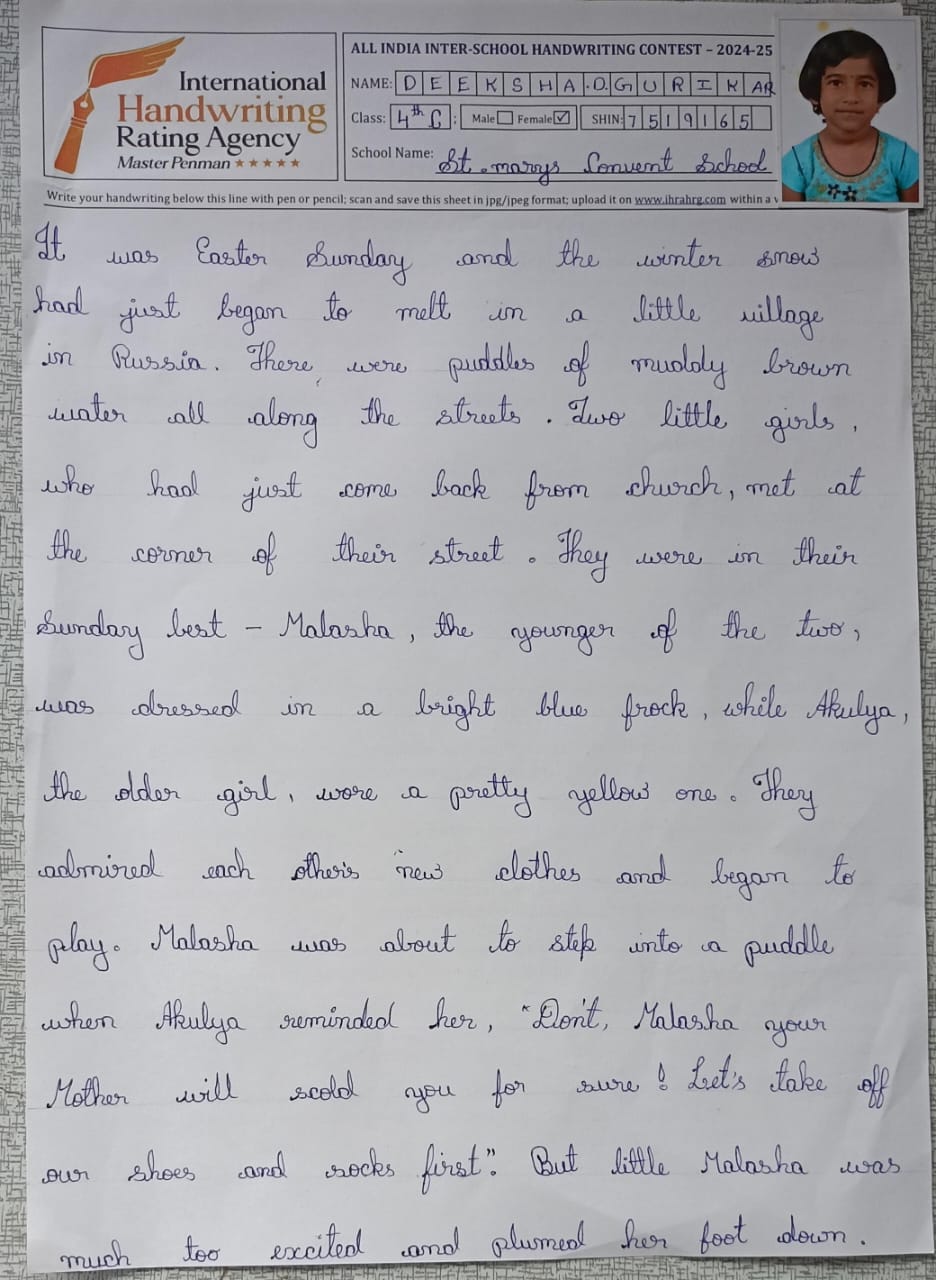 International
Handwriting
Rating Agency
Master Penman ★★★★★
ALL INDIA INTER-SCHOOL HANDWRITING CONTEST – 2024-25
NAME: DEEKSHA.D.GURIKAR
Class: 4th C : Male Female ✓ SHIN: 7519165
School Name: St. marys Convent School
Write your handwriting below this line with pen or pencil; scan and save this sheet in jpg/jpeg format; upload it on www.ihrahrg.com within a
It was Easter Sunday and the winter snow
had just began to melt in a little village
in Russia. There were puddles of muddy brown
water all along the streets. Two little girls,
who had just come back from church, met at
the corner of their street. They were in their
Sunday best – Malasha, the younger of the two,
was dressed in a bright blue frock, while Akulya,
the older girl, wore a pretty yellow one. They
admired each other's new clothes and began to
play. Malasha was about to step into a puddle
when Akulya reminded her, "Don't, Malasha your
Mother will scold you for sure! Let's take off
our shoes and socks first". But little Malasha was
much too excited and plumed her foot down.